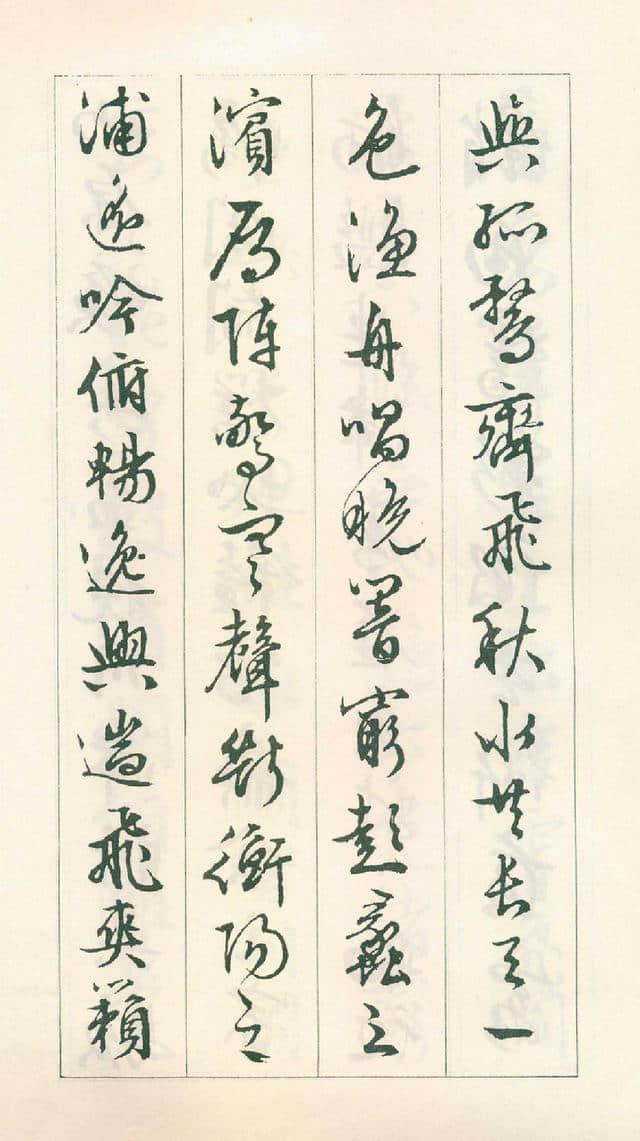 與孤鶩齊飛秋水共長天一
色漁舟唱晚響窮彭蠡之
濱鴈陣驚寒聲斷衡陽之
浦遙吟俯暢逸興遄飛爽籟